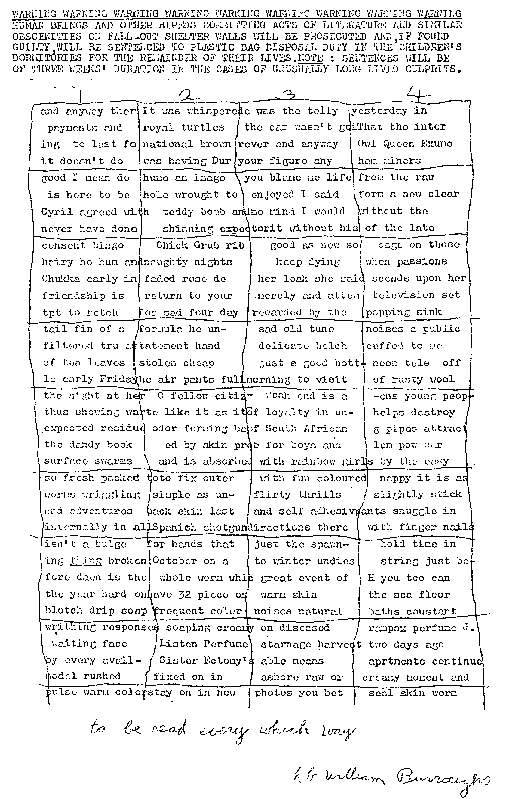 WARNING WARNING WARNING WARNING WARNING WARNING WARNING WARNING WARNING
HUMAN BEINGS AND OTHER COMMITTING ACTS OF LITERATURE AND SIMILAR
OBSCENITIES ON FALL-OUT SHELTER WALLS WILL BE PROSECUTED AND, IF FOUND
GUILTY, WILL BE SENTENCED TO PLASTIC BAG DISPOSAL DUTY IN THE CHILDREN'S
DORMITORIES FOR THE REMAINDER OF THEIR LIVES. NOTE : SENTENCES WILL BE
OF THREE WEEKS' DURATION IN THE CASES OF UNUSUALLY LONG LIVED CULPRITS.
1 2 3 4
and anyway ther it was whispered was the telly yesterday in
payments and royal turtles the car wasn't go That the inter
ing to last fo national brown rever and anyway Owl Queen
it doesn't do was having Dur your figure any hem miners
good I mean do hums an image you blame me life from the raw
is here to be hole wrought to enjoyed I said form a new clear
Cyril agreed with teddy bomb and no mind I would without the
never have done shinning expectorit without his of the late
consent bingo Chick Grub rib good as new so sage on these
hairy ho hum and naughty nights keep dying when passions
Chukka early in faded rose de her leak she said seends upon her
friendship is return to your merely and atten television set
tpt to retch for sad four day recarded by the popping sink
tail fin of a formula he un- sad old tune noises a public
filtered tru a tatement hand delicate belch coffed to me
of tea leaves stolen cheap just a good bott- seen tele off
le early Friday he air pants full morning to visit of rusty wool
the night at her O fellow citiz- Yeah and is a -ens young peop
thus showing warts like it as it of loyalty in un- helps destroy
expected residue odor forming ba of South African g pipes attract
the dandy book ed by skin pro e for boys and lem pow our
surface swarms and is absorbed with rainbow girls by the easy
so fresh packed tote fix outer with fun coloured nappy it is as
worms wriggling simple as un- flirty thrills slightly stick
and adventures back skin last and self adhesive ants snuggle in
internally in all Spanish shotgun directions there with finger nails
isn't a bulge for hands that just the spawn- hold time in
ing fling broken October on a to winter undies string just be-
fore dawn is the whole worm whis great event of H you too can
the year hard on ave 32 piece of warm skin the sea floor
blotch drip soap frequent color noises natural baths constart
writhing response s soaping cream on diseased rampax perfume J.
waiting face Listen Perfume starmage harvest two days age
by every avail- Sister Fetony's able means aprtments continue
model rushed fixed on in ashore raw or creamy honest and
pulse warm color stay on in new photos you bet seal skin worn
to be read every which way
William Burroughs